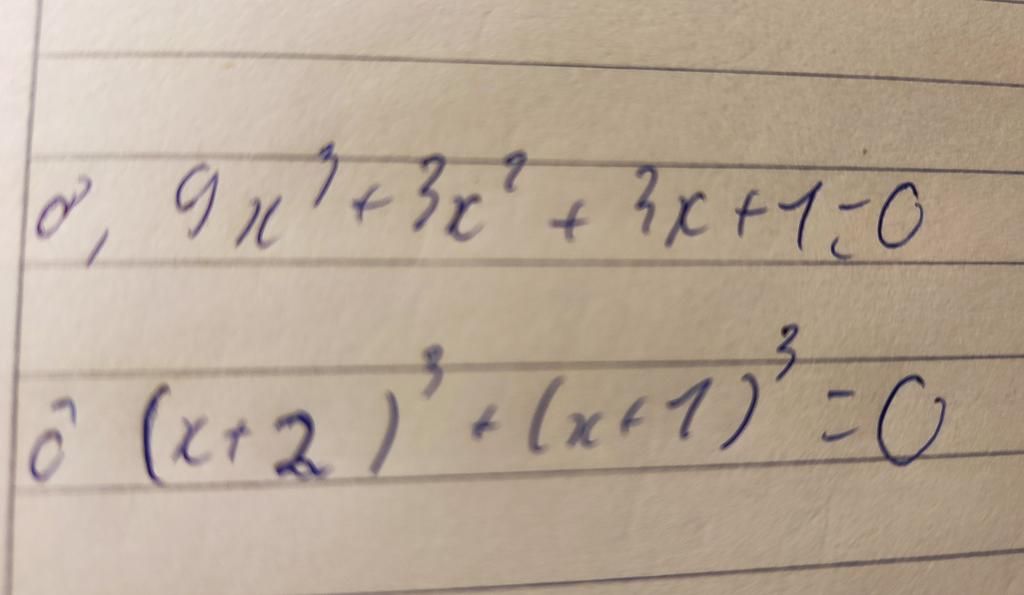 σ, 9x³ + 3x² + 3x + 1 = 0
(x+2)³ + (x+1)³ = 0